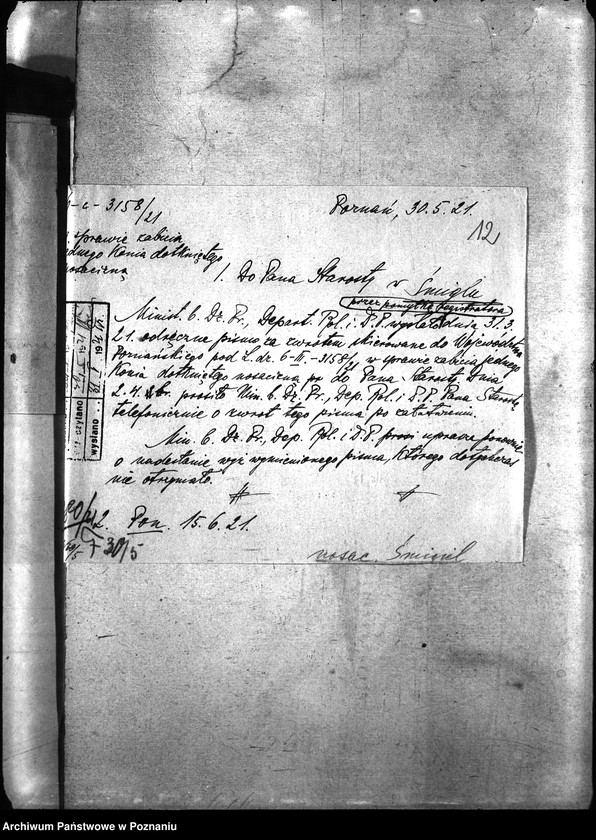 -c-3158/21
Poznań, 30.5.21.
12
sprawie zabicia
dnego konia dotkniętego
nosacizną
1. Do Pana Starosty w Śmiglu
przez pomyłkę registratora
Minist. b. Dz. Pr., Depart. Rol. i D.P. wysłało dnia 31.3.
21. odręczne pismo za zwrotem skierowane do Województwa
Poznańskiego pod L. dz. 6-III-3158/21 w sprawie zabicia jednego
konia dotkniętego nosacizną do Pana Starosty. Dnia
2.4. br. prosiło Min. b. Dz. Pr., Dep. Rol. i D.P. Pana Starostę
telefonicznie o zwrot tego pisma po załatwieniu.
Min. b. Dz. Pr., Dep. Rol. i D.P. prosi uprasza ponownie
o nadesłanie wyż wymienionego pisma, którego dotychczas
nie otrzymało.
2. Pon. 15.6.21.
30/5
nosac. Śmigiel
wysłano
Archiwum Państwowe w Poznaniu